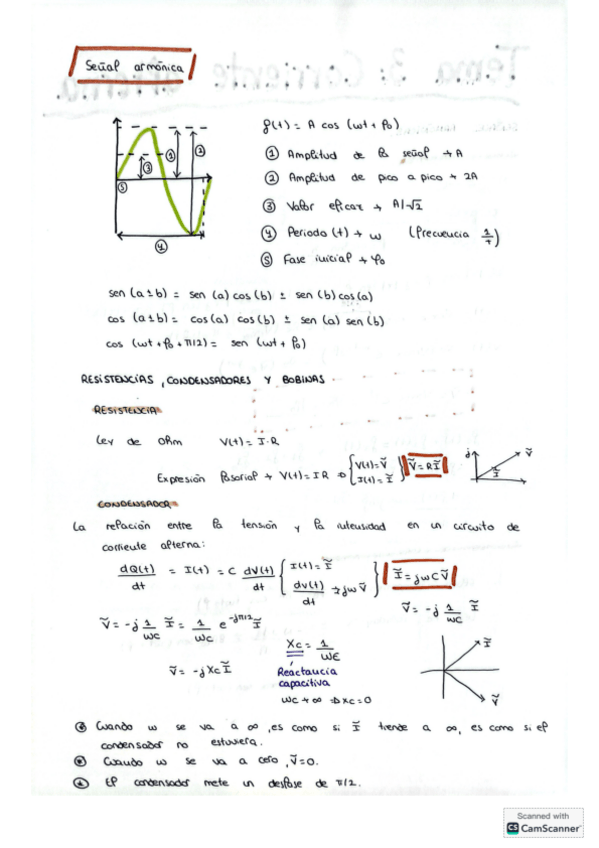 Señal armónica
f(t) = A cos (ωt + φ₀)
① Amplitud de la señal → A
② Amplitud de pico a pico → 2A
③ Valor eficaz → A/√2
④ Periodo (t) → ω (frecuencia 1/T)
⑤ Fase inicial → φ₀
① ② ③ ④ ⑤
sen (a ± b) = sen (a) cos (b) ± sen (b) cos (a)
cos (a ± b) = cos (a) cos (b) ± sen (a) sen (b)
cos (ωt + φ₀ + π/2) = sen (ωt + φ₀)
RESISTENCIAS, CONDENSADORES Y BOBINAS
RESISTENCIA
Ley de Ohm V(t) = I·R
Expresión fasorial → V(t) = IR ⇒ { V(t) = Ṽ I(t) = Ĩ } Ṽ = RĨ
j Ṽ Ĩ
CONDENSADOR
La relación entre la tensión y la intensidad en un circuito de
corriente alterna:
dQ(t)/dt = I(t) = C dV(t)/dt { I(t) = Ĩ dv(t)/dt → jωṼ } Ĩ = jωCṼ
Ṽ = -j 1/ωC Ĩ
Ṽ = -j 1/ωC Ĩ = 1/ωC e^-jπ/2 Ĩ
Xc = 1/ωC
Ṽ = -jXcĨ
Reactancia
capacitiva
ωc → ∞ ⇒ Xc = 0
Ĩ
Ṽ
Cuando ω se va a ∞, es como si Ĩ tiende a ∞, es como si el
condensador no estuviera.
Cuando ω se va a cero, Ṽ = 0.
El condensador mete un desfase de π/2.
Scanned with
CS CamScanner